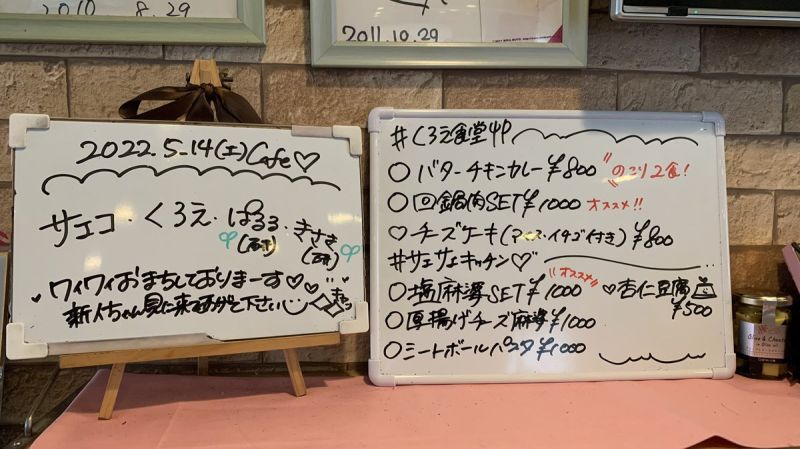 2010 8.29
2011.10.29
2022.5.14(土)Cafe♡
サエコ・くろえ・ぱるる・きさき
ワイワイおまちしておりまーす♡♡
新人ちゃん見に来て下さい
#くろえ食堂
○バターチキンカレー¥800 "のこり2食!
○回鍋肉SET¥1000 オススメ!!
♡チーズケーキ(アイス・イチゴ付き)¥800
#サエサエキッチン♡
"オススメ"
○塩麻婆SET¥1000 ♡杏仁豆腐
¥500
○厚揚げチーズ麻婆¥1000
○ミートボールパスタ¥1000